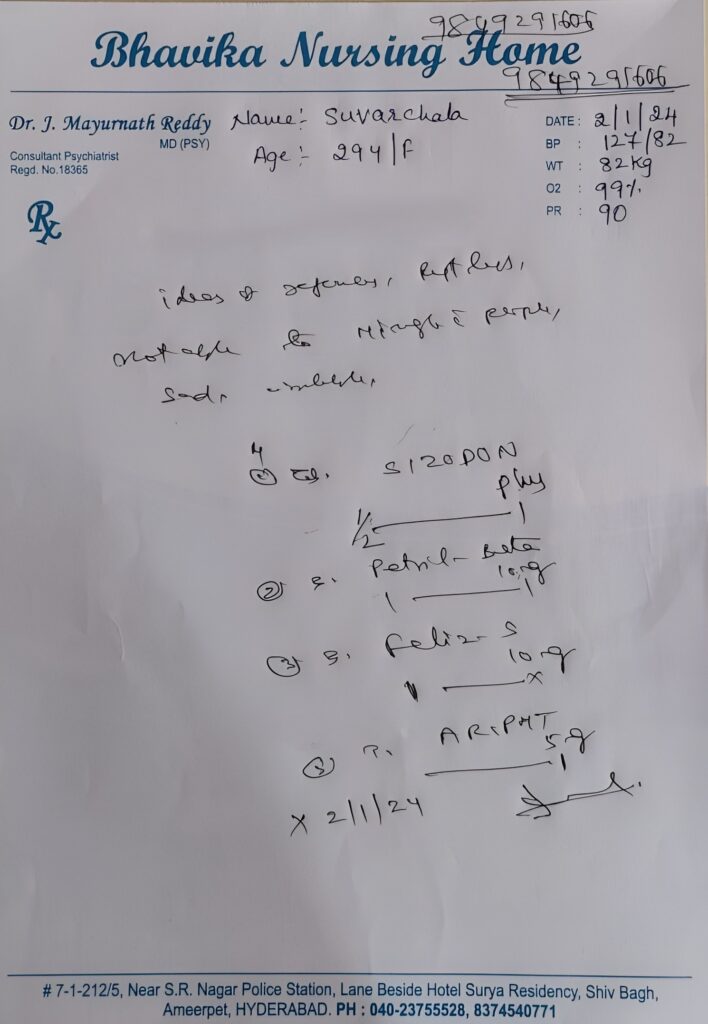 9849291606
Bhavika Nursing Home
9849291606
Dr. J. Mayurnath Reddy
MD (PSY)
Consultant Psychiatrist
Regd. No.18365
Name:- Suvarchala
Age:- 29y/F
DATE : 2/1/24
BP : 127/82
WT : 82kg
O2 : 99%
PR : 90
Rx
ideas of
not able to mingle c people,
Sad,
SIZODON
plus
1/2 — 1
② Petril- Beta
10mg
1 — 1
③ Feliz- S
10mg
1 — x
T. ARIPMT
5mg
— 1
x 2/1/24
# 7-1-212/5, Near S.R. Nagar Police Station, Lane Beside Hotel Surya Residency, Shiv Bagh,
Ameerpet, HYDERABAD. PH : 040-23755528, 8374540771